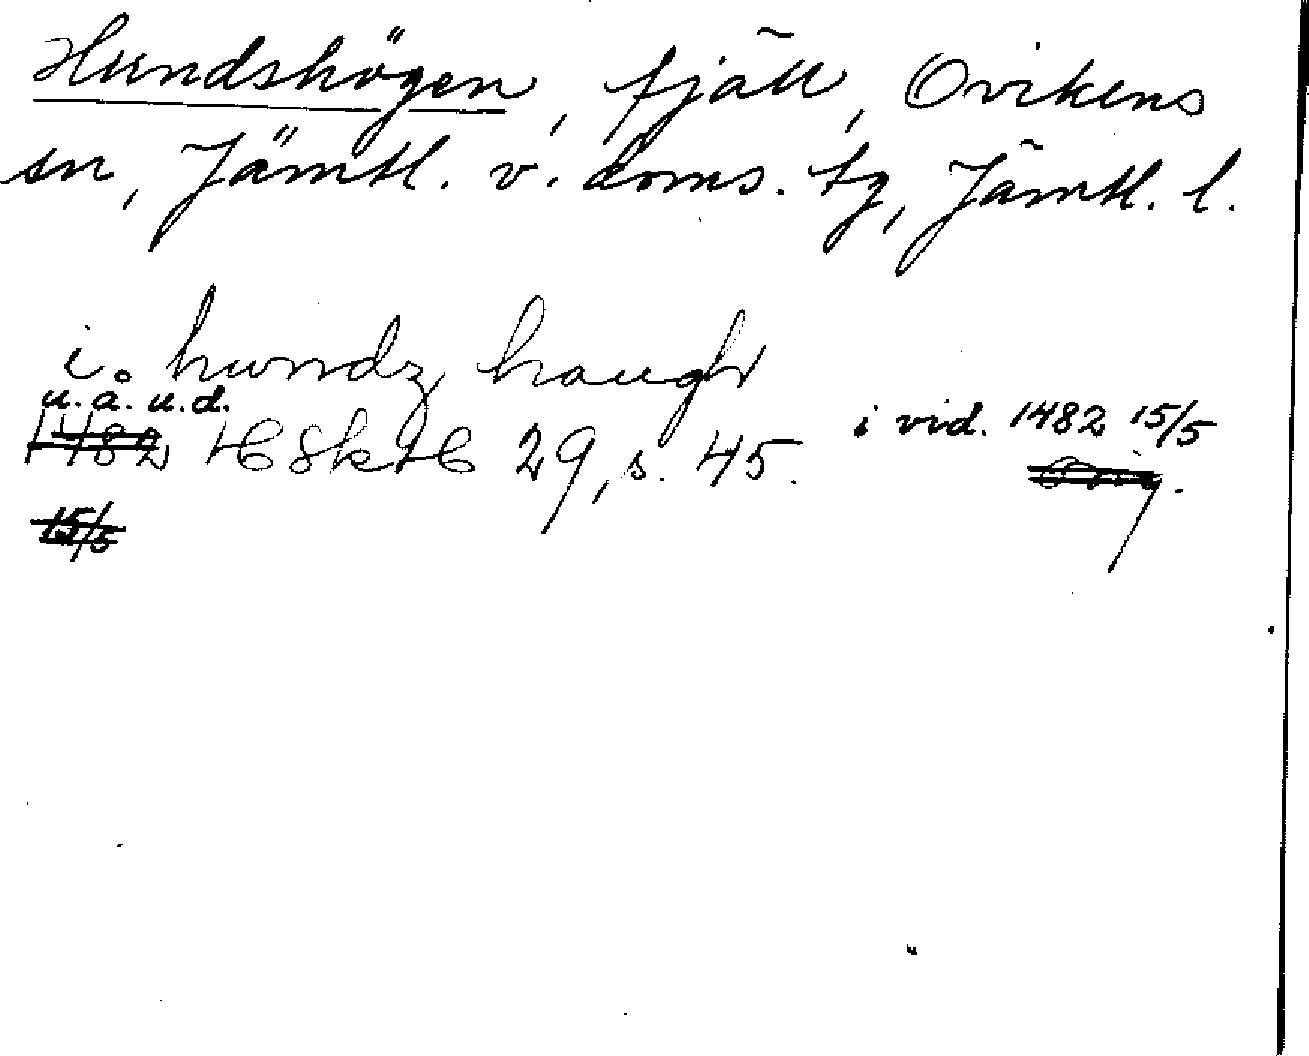 Hundshögen, fjäll, Ovikens
sn, Jämtl. v. doms. tg, Jämtl. l.
i. hundz haugh
u.å. u.d.
1482 HSkH 29, s. 45.
i vid. 1482 15/5
Orig.
15/5